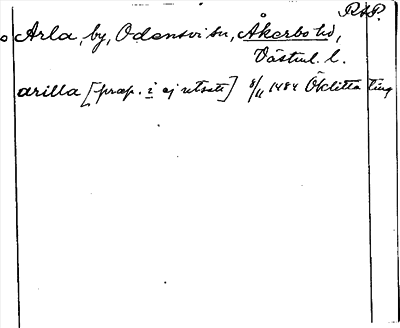 RAP.
Arla, by, Odensvi sn, Åkerbo hd,
Västml. l.
arilla [præp. i ej utsatt] 8/11 1484 Öklitta ting